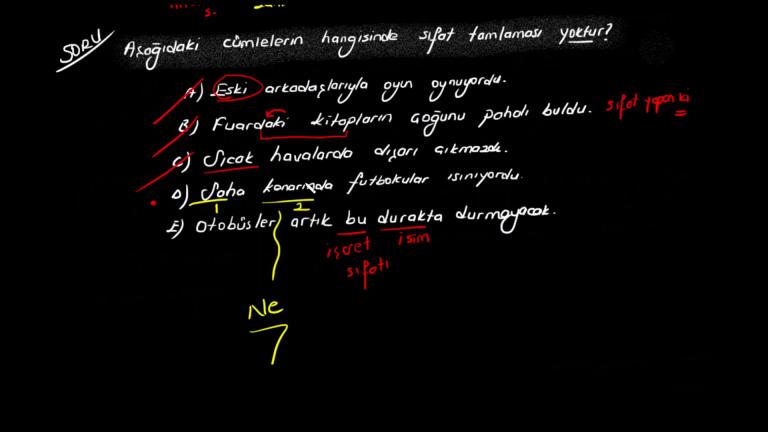 s.
SORU Aşağıdaki cümlelerin hangisinde sıfat tamlaması yoktur?
A) Eski arkadaşlarıyla oyun oynuyordu.
B) Fuardaki kitapların çoğunu pahalı buldu. sıfat yapan ki
C) Sıcak havalarda dışarı çıkmazdı.
D) Saha kenarında futbolcular ısınıyordu.
1 2
E) Otobüsler artık bu durakta durmayacak.
işaret isim
sıfatı
Ne
?